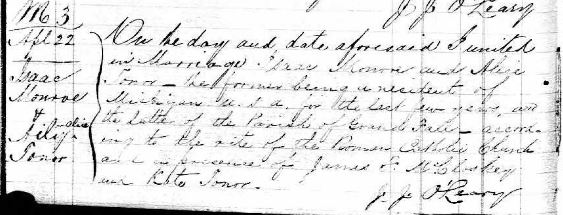 J. J. O'Leary
M 3
Apl 22
Isaac
Monroe
&
Alice
Tonor
On the day and date aforesaid I united
in Marriage Isaac Monroe and Alice
Tonor – the former being a resident of
Michigan U.S.A. for the last few years, and
the latter of the Parish of Grand Falls – accord-
ing to the rite of the Roman Catholic Church
and in presence of James F. McCloskey
and Kate Tonor.
J. J. O'Leary